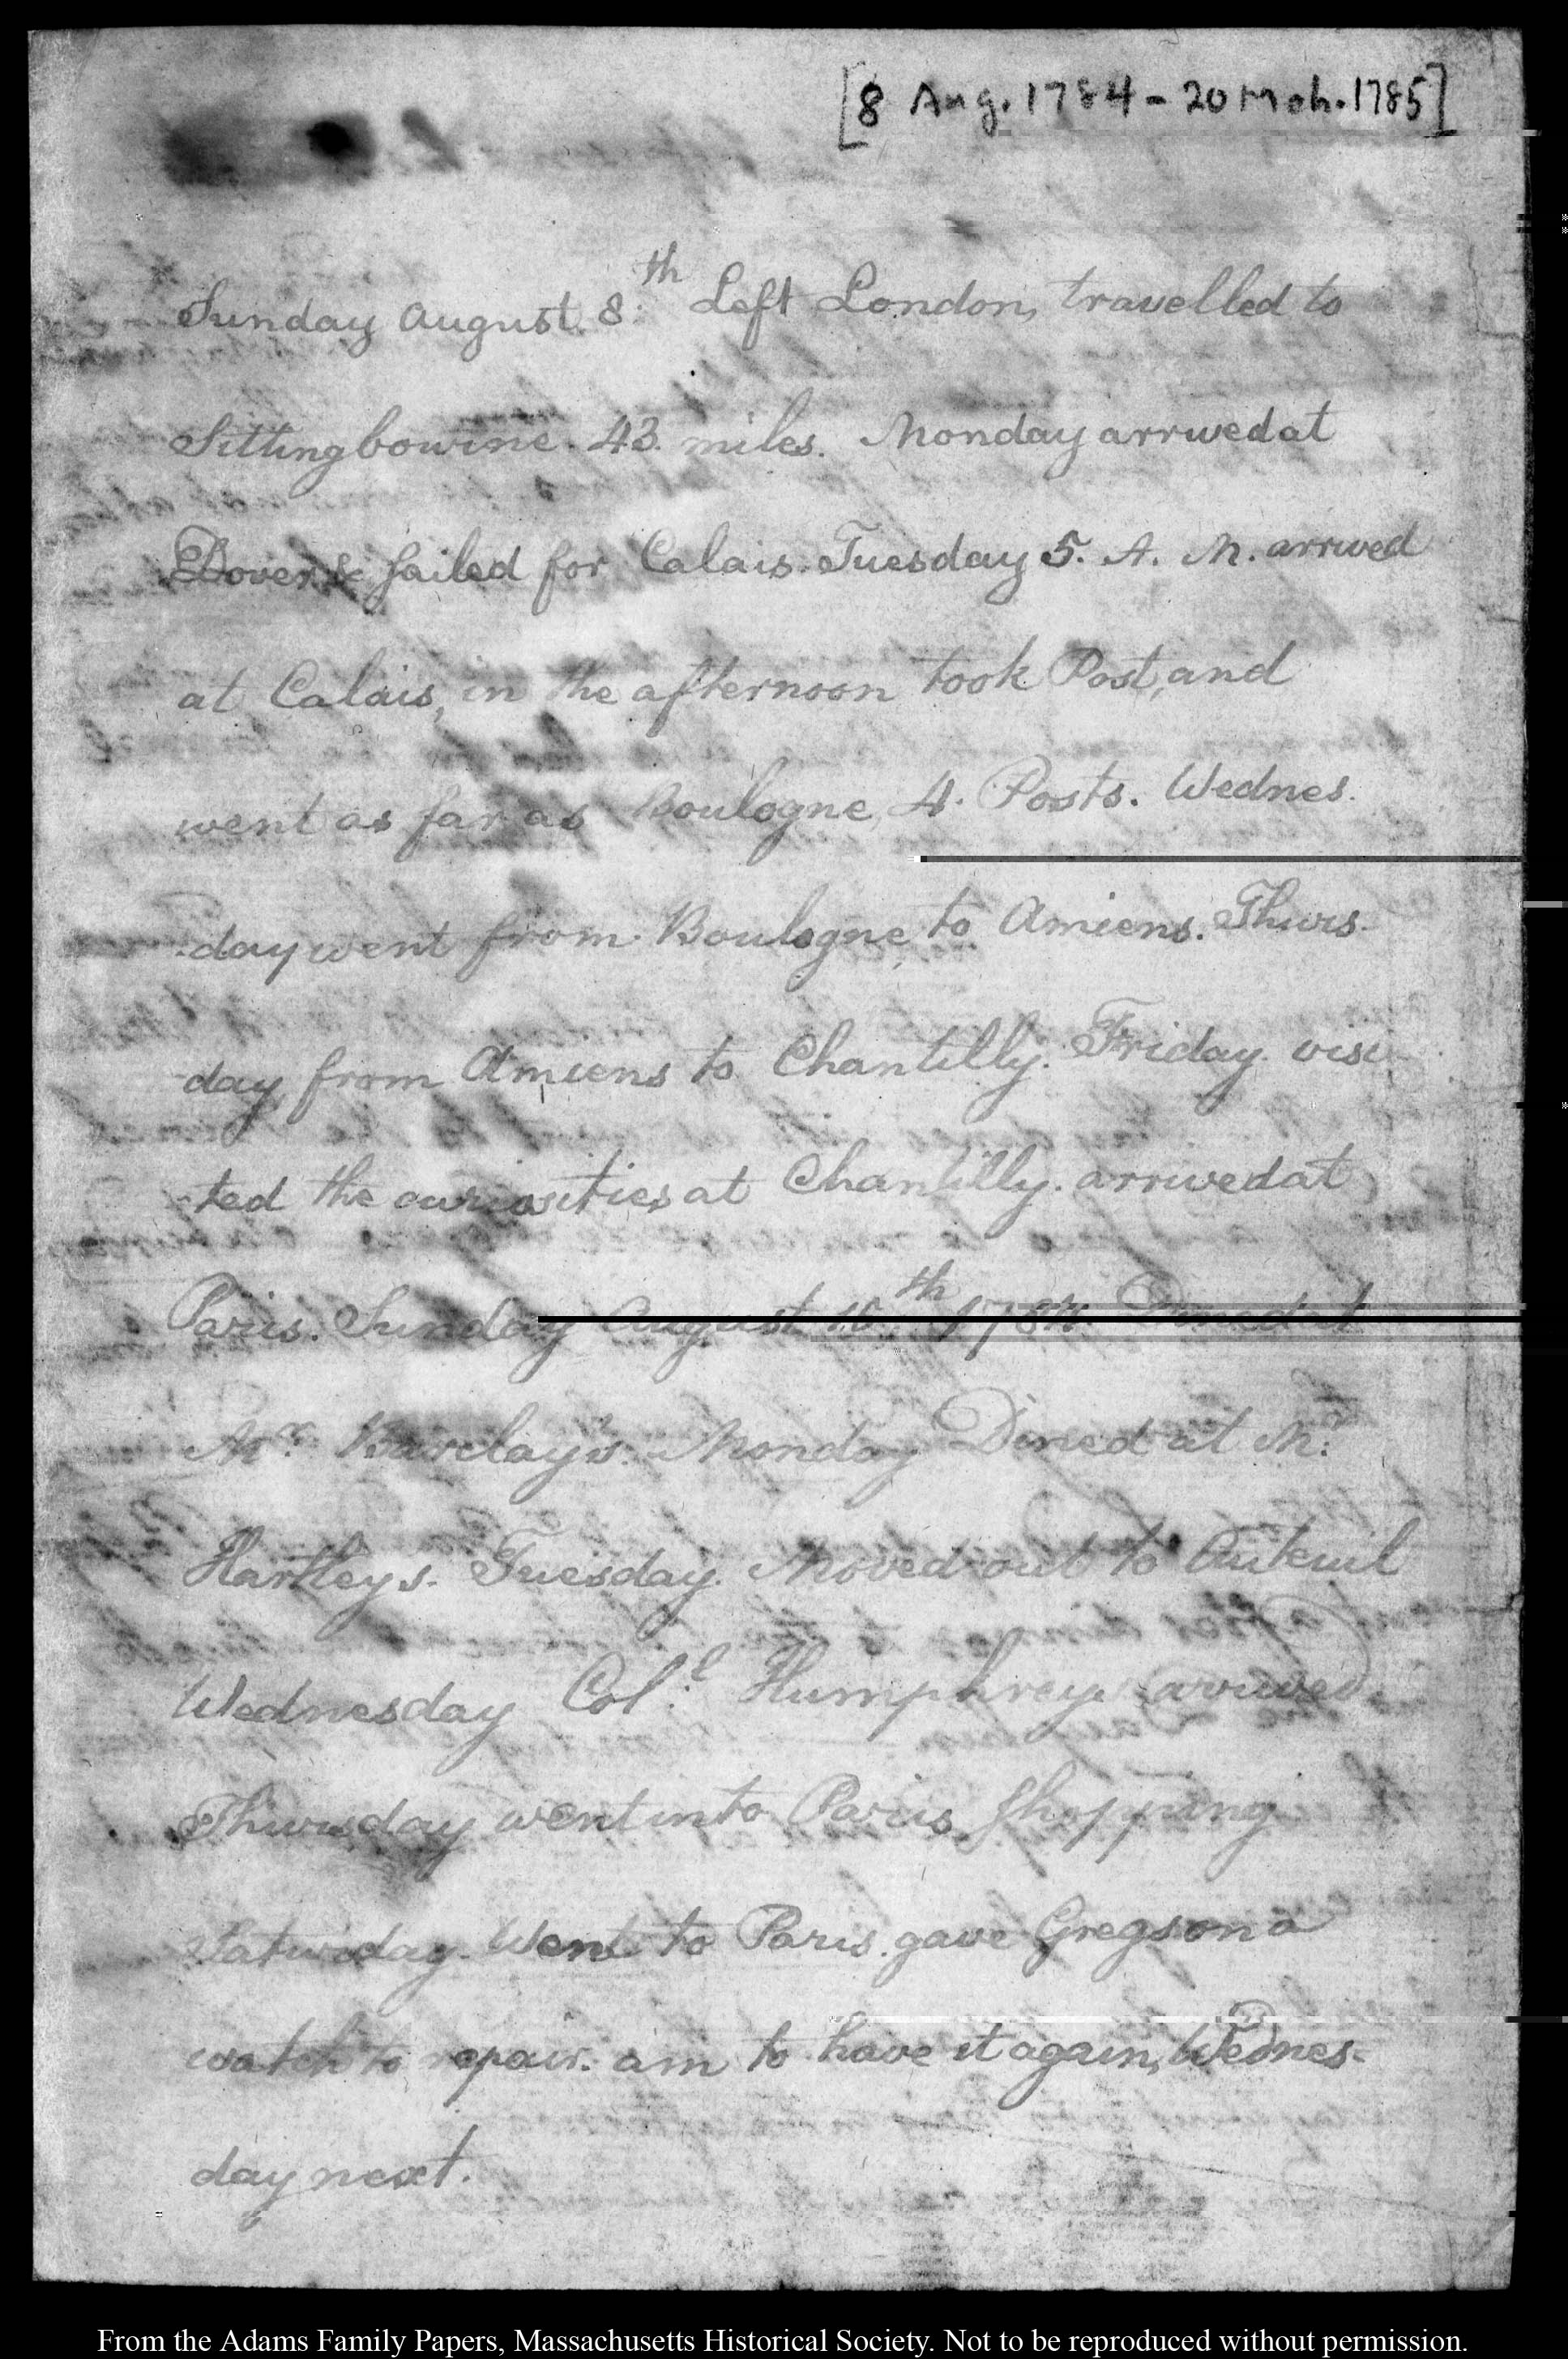 [8 Aug. 1784 - 20 Mch. 1785]
Sunday August. 8.th Left London, travelled to
Sittingbourne. 43. miles. Monday arrived at
Dover & sailed for Calais. Tuesday 5. A. M. arrived
at Calais, in the afternoon took Post, and
went as far as Boulogne, 4. Posts. Wednes-
-day went from Boulogne, to Amiens. Thurs-
-day, from Amiens to Chantilly. Friday visi-
-ted the curiosities at Chantilly. arrived at
Paris. Sunday August 15th 1784. Dined at
Mr. Barclay's. Monday Dined at Mr.
Hartleys. Tuesday. Moved out to Auteuil
Wednesday Col.l Humphreys arrived.
Thursday went into Paris, shopping
Saturday. Went to Paris. gave Gregson a
watch to repair. am to have it again, Wednes-
day next.
From the Adams Family Papers, Massachusetts Historical Society. Not to be reproduced without permission.